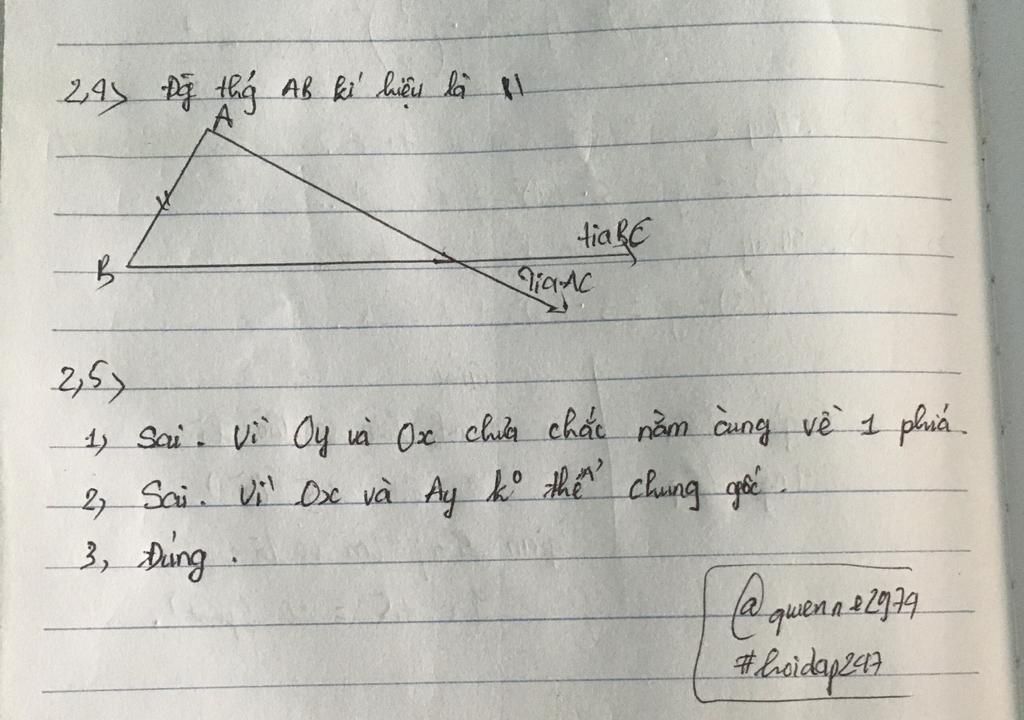 2,4> Đg thg AB kí hiệu là \\
A
B
tia BC
Tia AC
2,5>
1, Sai. Vì Oy và Ox chưa chắc nằm cùng về 1 phía.
2, Sai. Vì Ox và Ay ko thể chung gốc.
3, Đúng.
@quenne2974
#hoidap247